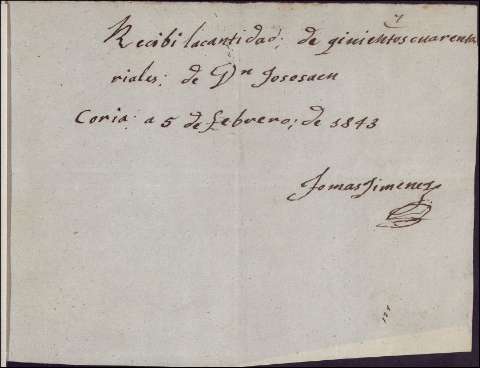 Recibi lacantidad; de ginientos cuarenta
riales; de Dn Jososaen
Coria; a 5 de febrero; de 1843
Jomas Jimenez